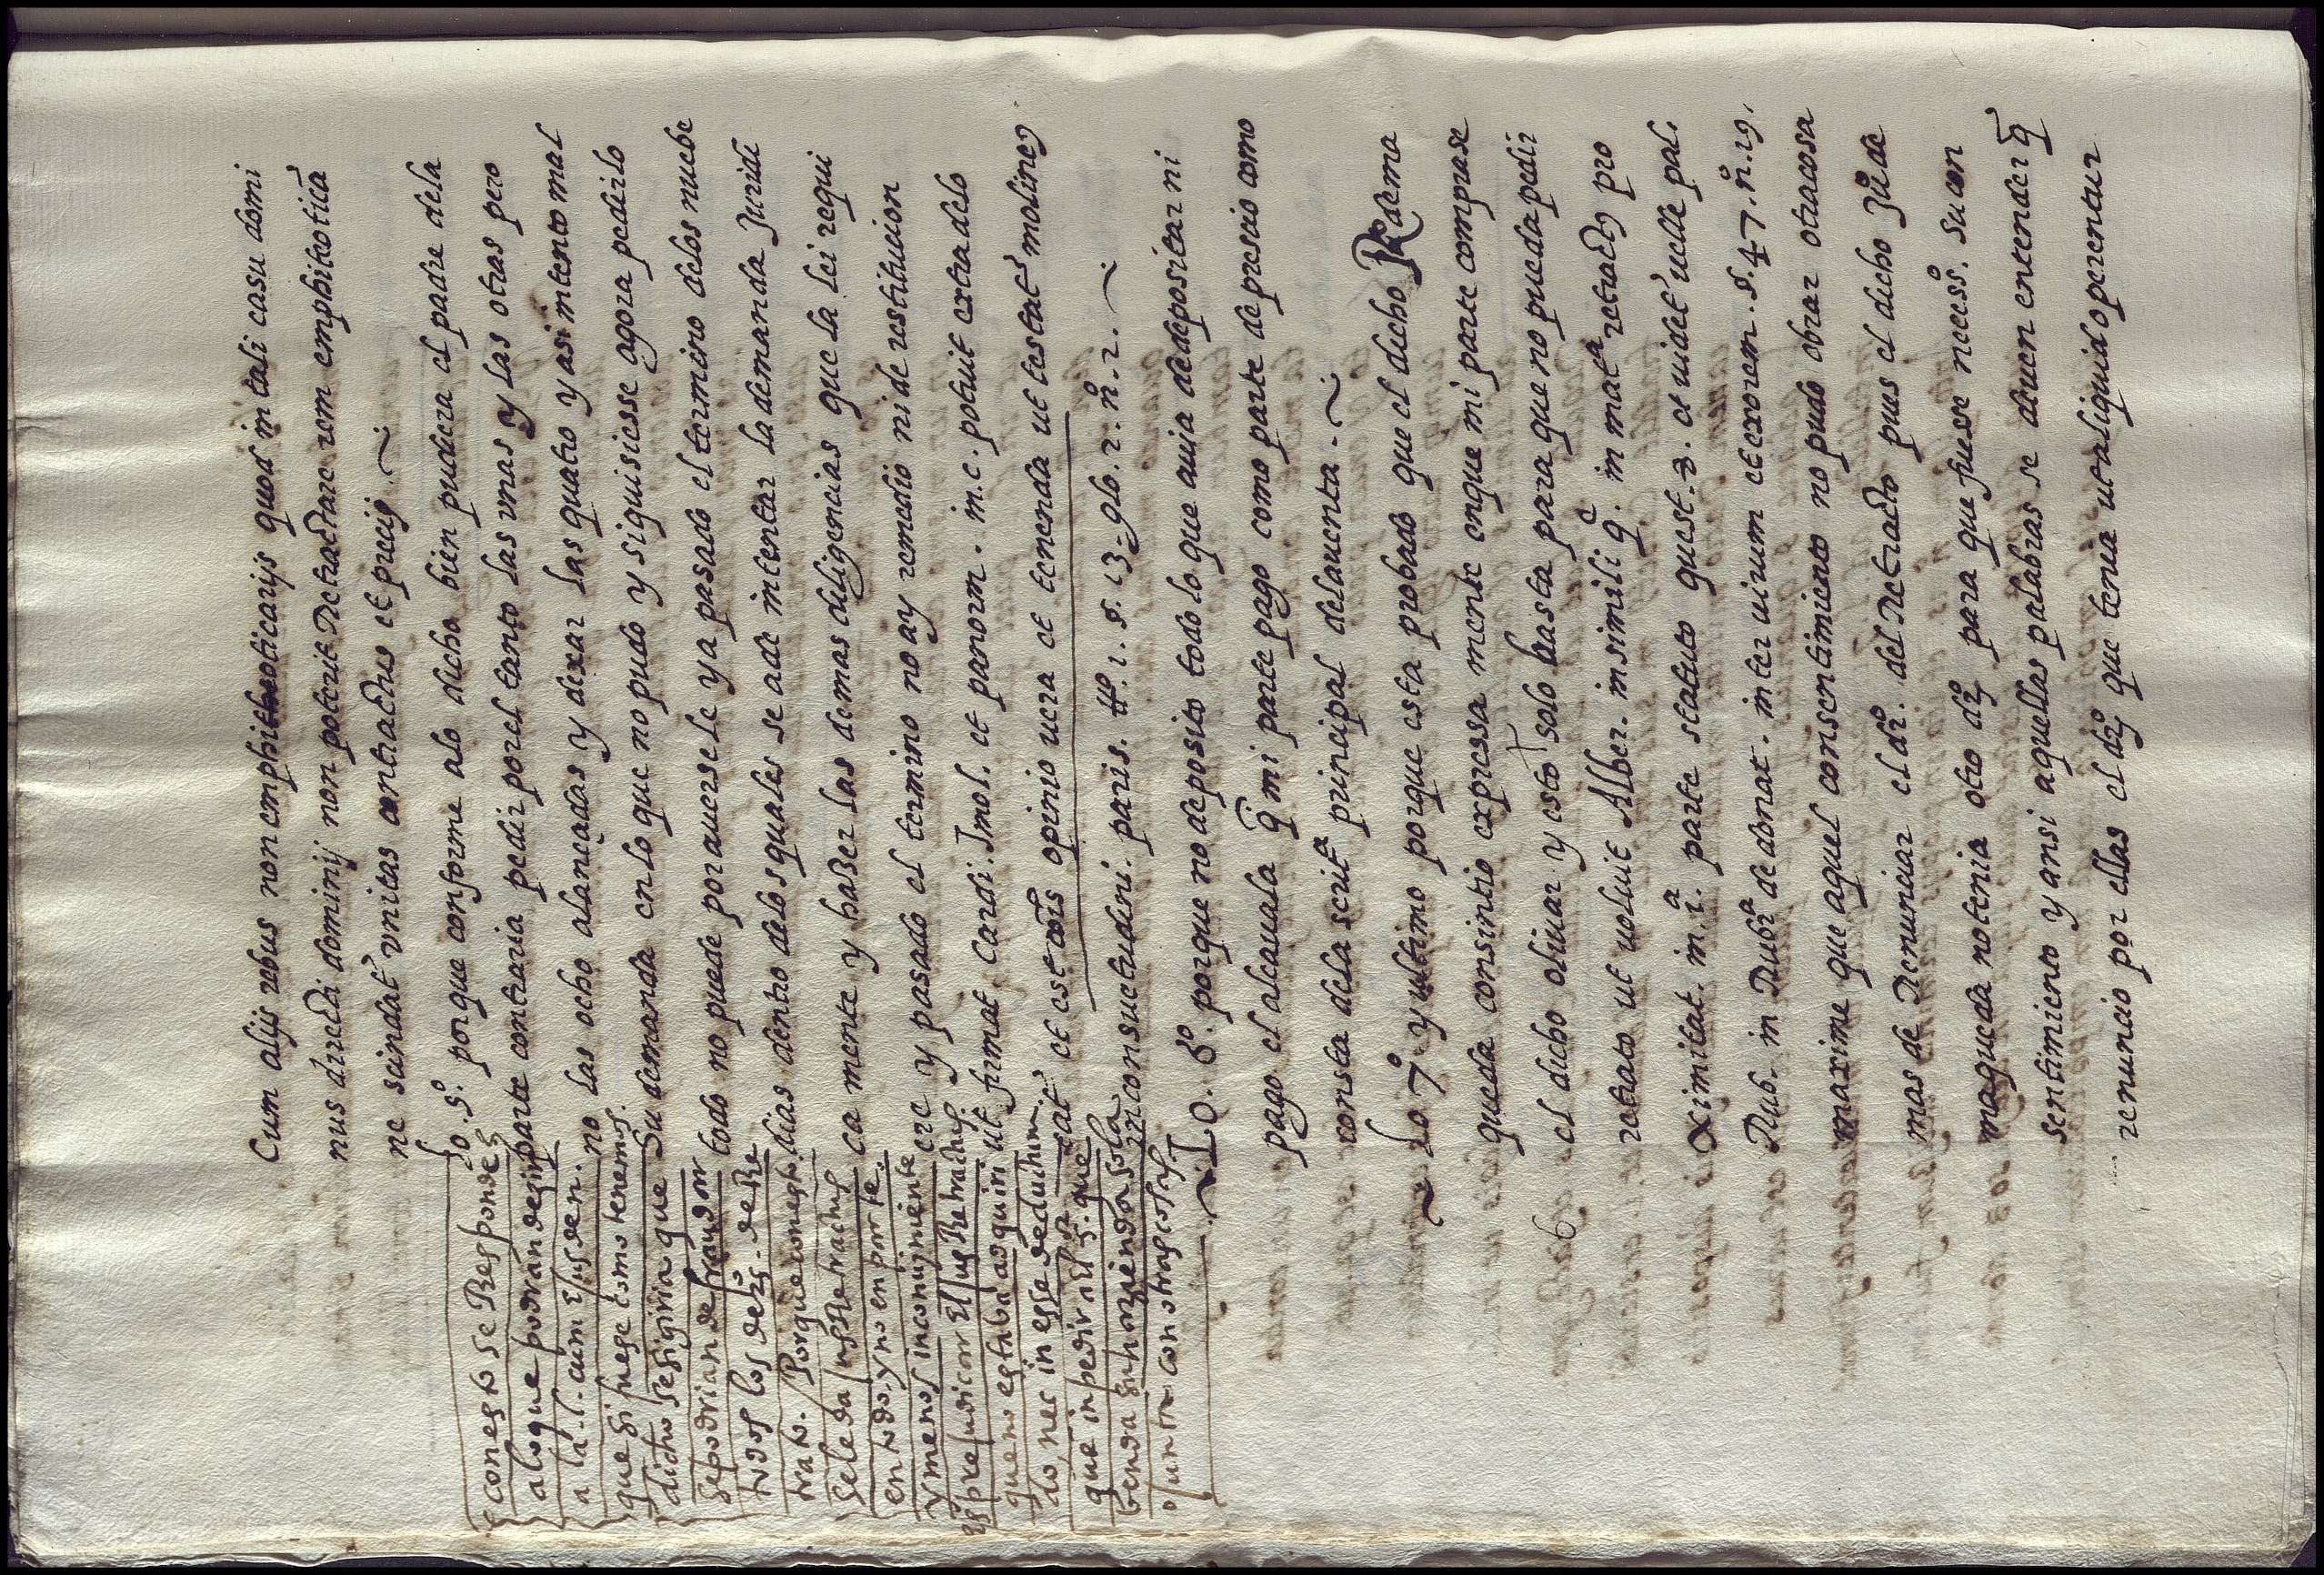 Cum alijs rebus non emphitheoticarijs quod in tali casu domi
nus directi dominij non poterit Retractare rem emphiteotica
ne scindat' vnitas contractus et precij
Lo. 5º. porque conforme alo dicho bien pudiera el padre dela
parte contraria pedir porel tanto las vnas y las otras pero
no las ocho alançadas y dexar las quatro y asi intento mal
su demanda en lo que no pudo y si quisiesse agora pedirlo
todo no puede por auersele ya pasado el termino delos nuebe
dias dentro delos quales se a de intentar la demanda Juridi
ca mente y haser las demas diligencias que la lei requi
ere y pasado el termino no ay remedio ni de restitucion
ut firmat Cardi. Imol. et panorm. in. c. potuit extra de lo
cat' et est cois opinio uera et tenenda ut testat' molineus
in consuetudini. paris. tto. 1. §. 13. glo. 2. nº. 2.
Lo. 6º. porque no deposito todo lo que auia de depositar ni
pago el alcauala q̄ mi parte pago como parte de prescio como
consta dela scrita principal dela uenta.
Lo 7º y ultimo porque esta probado que el dicho Rdema
queda consintio expressa mente en que mi parte comprase
el dicho oliuar y esto solo basta para que no pueda pedir
retrato ut uoluit Alber. in simili q. in mata retractus pro
ximitat. in. 1ª. parte statuto quest. 3. et uidet' uelle pal.
Rub. in Rubrª de donat. inter uirum et uxorem. §. 47. nº. 19.
maxime que aquel consentimiento no pudo obrar otra cosa
mas de Renunciar el drº. del Retracto pues el dicho Juº de
maqueda no tenia otro drº para que fuesse necessº. su con
sentimiento y ansi aquellas palabras se deuen entender q̄
renuncio por ellas el drº que tenia ut aliquid operentur
con esto se Responde
a lo que podran dezir
a la. l. cum eiusdem.
que si fuese como tenemos
dicho se sigiria que
se podrian defraudar
todos los derºs. de Re
trato. Porque con esto
se le da sus Retractus
en todo. y no en parte.
y menos inconuiniente
es prejudicar El jus Retractus
que no estaba adquiri
do, nec in esse deductum
que inpedir a El Sr. que
benda su hazienda sola
o junta con otras cosas.